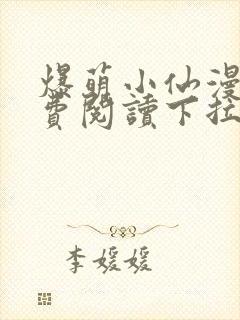 爆萌小仙漫
費閱讀下拉
李媛媛